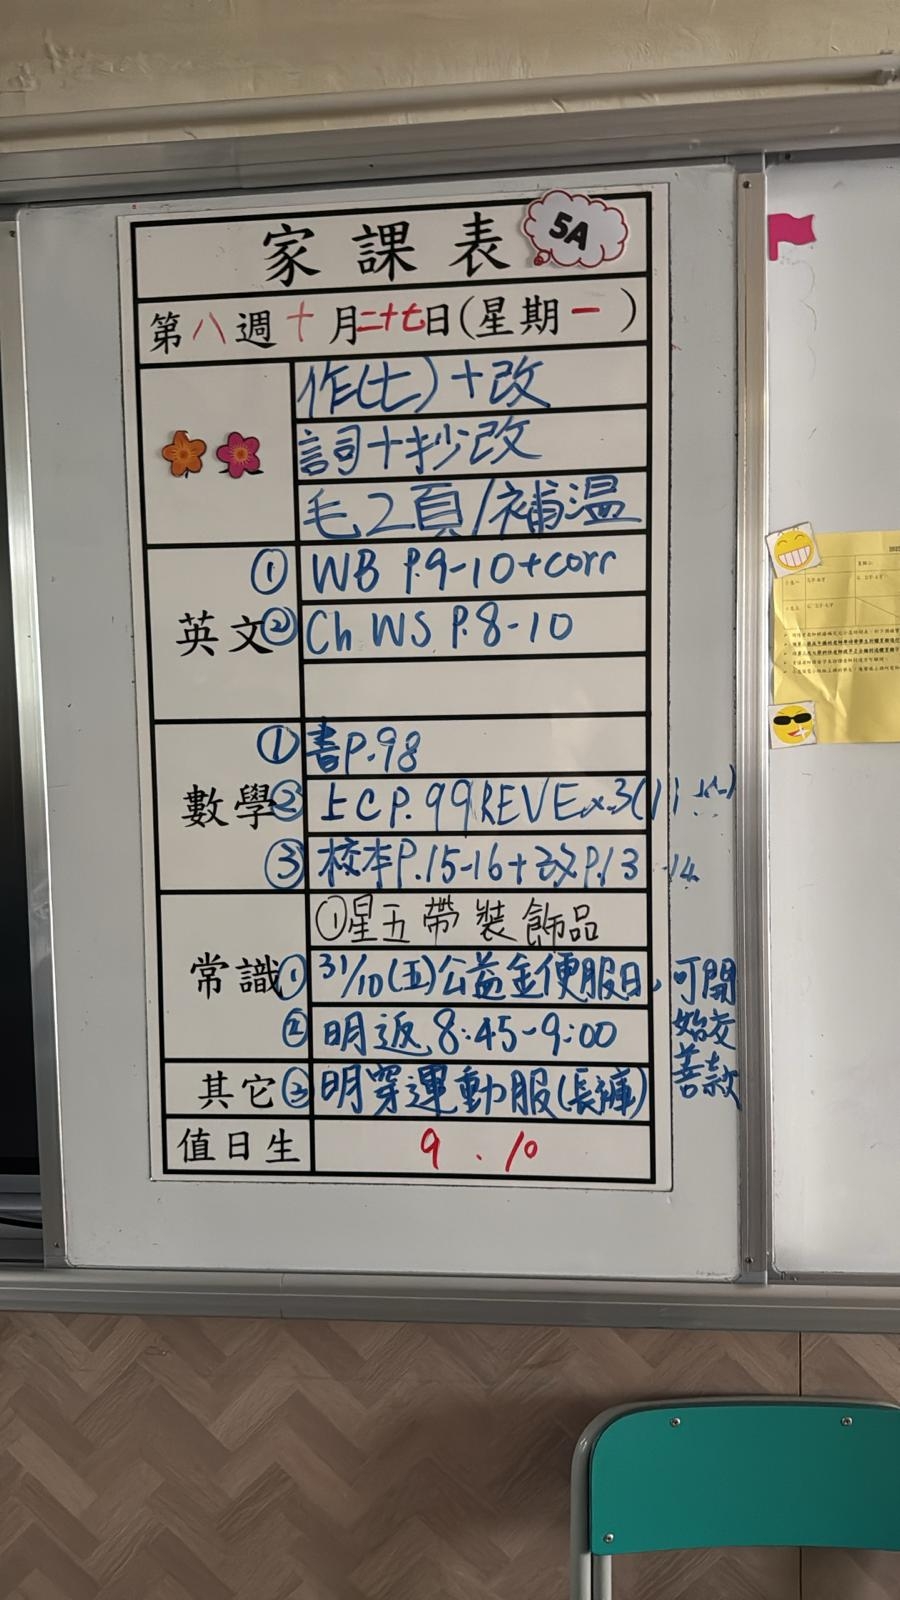 家課表 5A
第八週十月二十七日(星期一)
作(七)+改
詞+抄改
毛2頁/補溫
英文
① WB P.9-10+corr
② Ch WS P.8-10
數學
① 書P.98
② 上CP.99 REVEx.3(
③ 校本P.15-16+改P.13-14
常識
①星五帶裝飾品
① 31/10(五)公益金便服日,可開始交善款
② 明返8:45-9:00
其它
③ 明穿運動服(長褲)
值日生
9.10